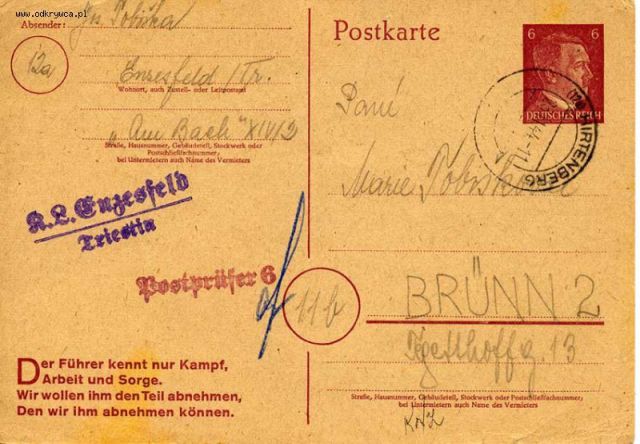 www.odkrywca.pl
Absender:
12a
Enzesfeld / Tr.
Wohnort, auch Zustell- oder Leitpostamt
"Am Bach" XIV/2
Straße, Hausnummer, Gebäudeteil, Stockwerk oder
Postschließfachnummer,
bei Untermietern auch Name des Vermieters
K.L. Enzesfeld
Triestin
Postprüfer 6
Der Führer kennt nur Kampf,
Arbeit und Sorge.
Wir wollen ihm den Teil abnehmen,
Den wir ihm abnehmen können.
Postkarte
6 6
DEUTSCHES REICH
HIRTENBERG
Paní
Marie
11b
BRÜNN 2
13
Straße, Hausnummer, Gebäudeteil, Stockwerk oder Postschließfachnummer;
bei Untermietern auch Name des Vermieters